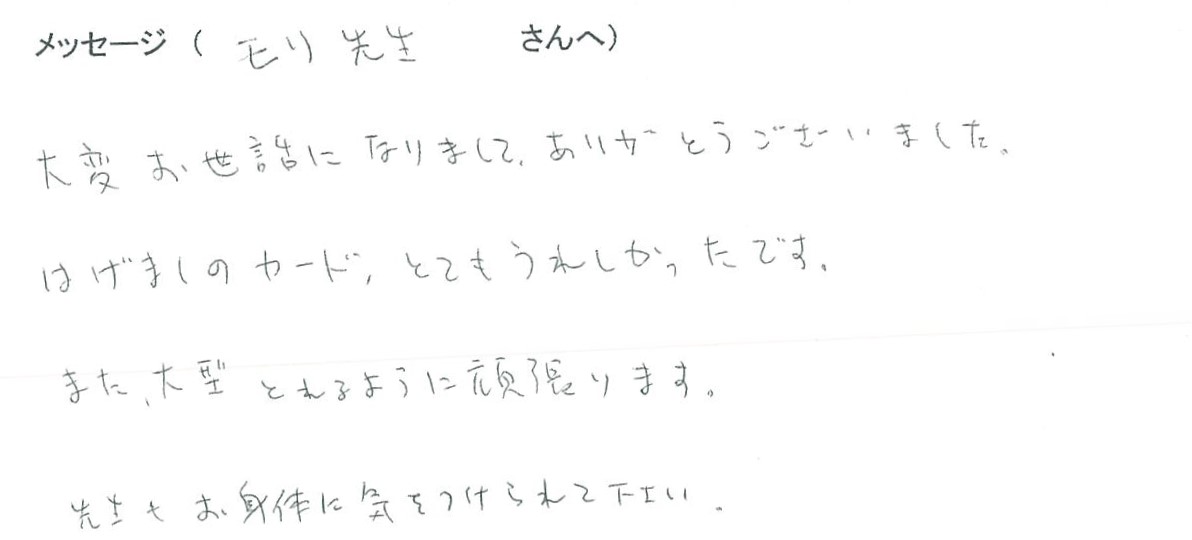 メッセージ（ モリ先生 さんへ）
大変お世話になりまして、ありがとうございました。
はげましのカード、とてもうれしかったです。
また、大型とれるように頑張ります。
先生もお身体に気をつけられて下さい。